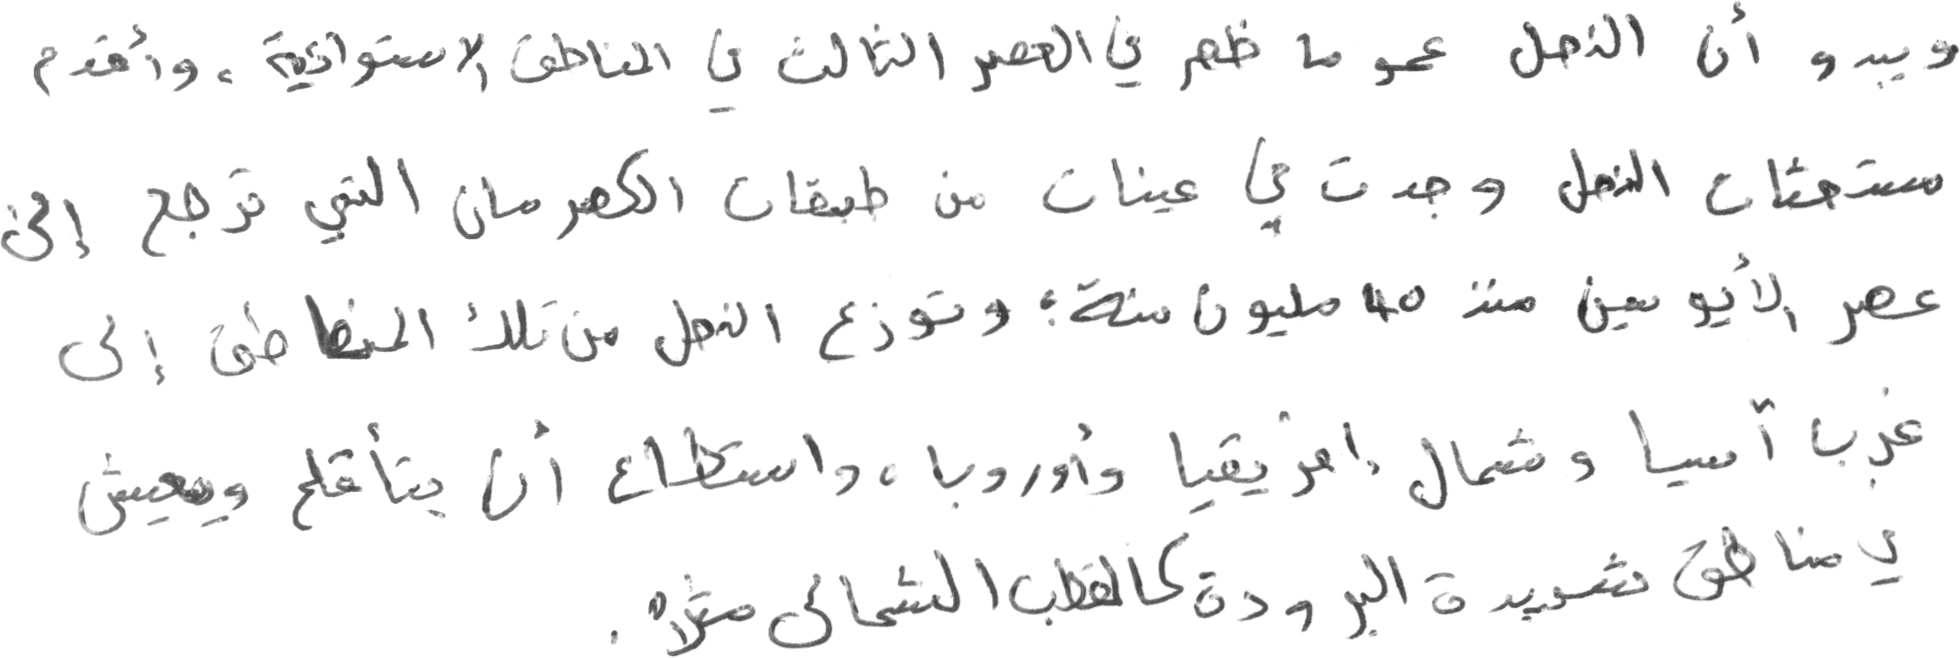 ويبدو أن النحل عموما ظهر في العصر الثالث في المناطق الاستوائية، وأقدم
مستحثات النحل وجدت في عينات من طبقات الكهرمان التي ترجع إلى
عصر الأيوسين منذ 40 مليون سنة؛ وتوزع النحل من تلك المناطق إلى
غرب آسيا وشمال إفريقيا وأوروبا، واستطاع أن يتأقلم ويعيش
في مناطق شديدة البرودة كالقطب الشمالي مثلاً.